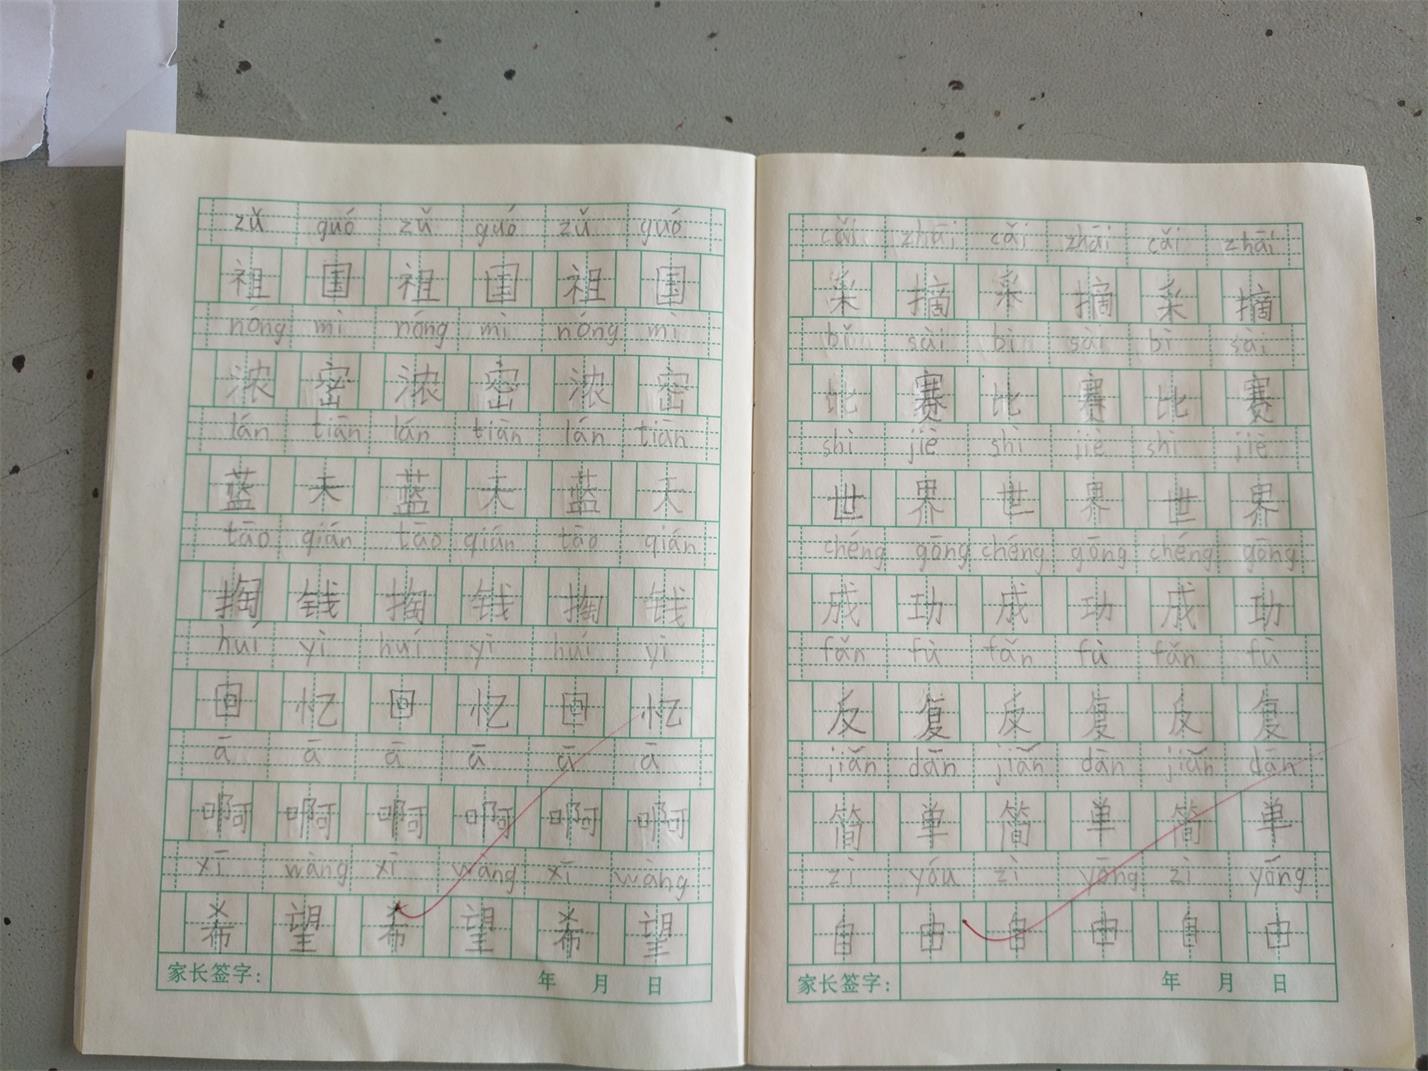 zǔ guó zǔ guó zǔ guó
祖 国 祖 国 祖 国
nóng mì nóng mì nóng mì
浓 密 浓 密 浓 密
lán tiān lán tiān lán tiān
蓝 天 蓝 天 蓝 天
tāo qián tāo qián tāo qián
掏 钱 掏 钱 掏 钱
huí yì huí yì huí yì
回 忆 回 忆 回 忆
ā ā ā ā ā ā
啊 啊 啊 啊 啊 啊
xī wàng xī wàng xī wàng
希 望 希 望 希 望
家长签字: 年 月 日
cǎi zhāi cǎi zhāi cǎi zhāi
采 摘 采 摘 采 摘
bǐ sài bǐ sài bǐ sài
比 赛 比 赛 比 赛
shì jiè shì jiè shì jiè
世 界 世 界 世 界
chéng gōng chéng gōng chéng gōng
成 功 成 功 成 功
fǎn fù fǎn fù fǎn fù
反 复 反 复 反 复
jiǎn dān jiǎn dān jiǎn dān
简 单 简 单 简 单
zì yóu zì yōng zì yóng
自 由 自 由 自 由
家长签字: 年 月 日